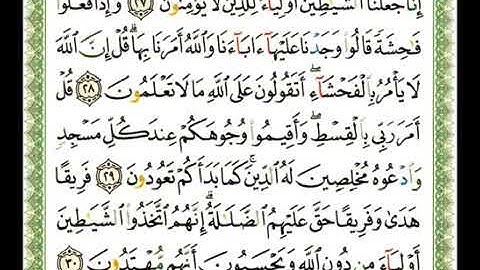 إِنَّا جَعَلْنَا ٱلشَّيَٰطِينَ أَوْلِيَآءَ لِلَّذِينَ لَا يُؤْمِنُونَ ٢٧ وَإِذَا فَعَلُوا۟
فَٰحِشَةً قَالُوا۟ وَجَدْنَا عَلَيْهَآ ءَابَآءَنَا وَٱللَّهُ أَمَرَنَا بِهَا ۗ قُلْ إِنَّ ٱللَّهَ
لَا يَأْمُرُ بِٱلْفَحْشَآءِ ۖ أَتَقُولُونَ عَلَى ٱللَّهِ مَا لَا تَعْلَمُونَ ٢٨ قُلْ
أَمَرَ رَبِّى بِٱلْقِسْطِ ۖ وَأَقِيمُوا۟ وُجُوهَكُمْ عِندَ كُلِّ مَسْجِدٍ
وَٱدْعُوهُ مُخْلِصِينَ لَهُ ٱلدِّينَ ۚ كَمَا بَدَأَكُمْ تَعُودُونَ ٢٩ فَرِيقًا
هَدَىٰ وَفَرِيقًا حَقَّ عَلَيْهِمُ ٱلضَّلَٰلَةُ ۗ إِنَّهُمُ ٱتَّخَذُوا۟ ٱلشَّيَٰطِينَ
أَوْلِيَآءَ مِن دُونِ ٱللَّهِ وَيَحْسَبُونَ أَنَّهُم مُّهْتَدُونَ ٣٠